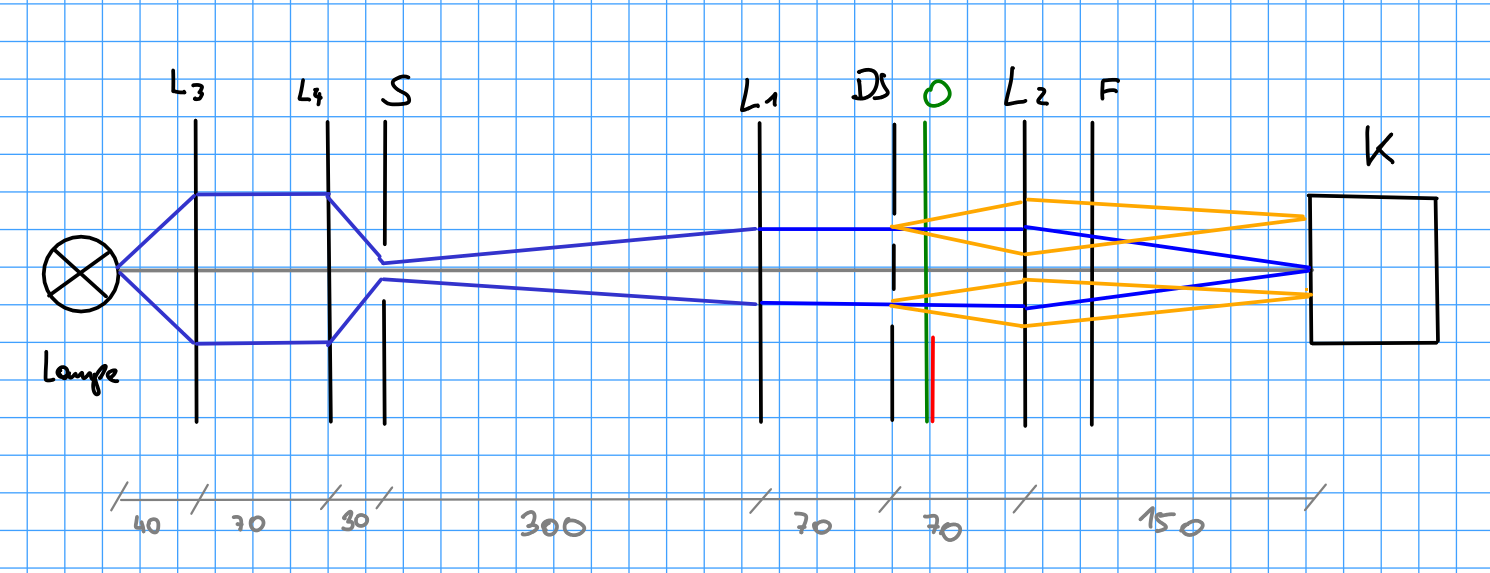 L3 L4 S L1 DS O L2 F K
Lampe
40 70 30 300 70 70 150